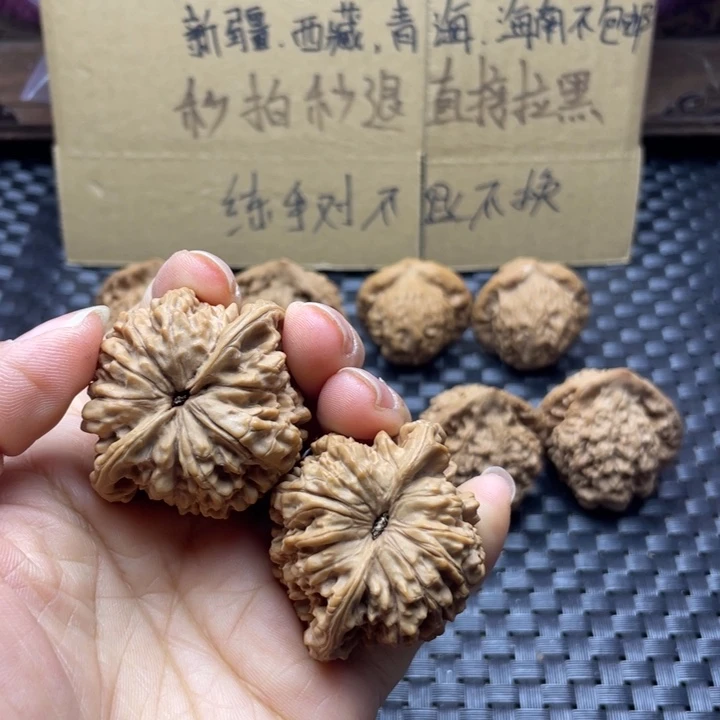 新疆.西藏,青海.海南不包邮
秒拍秒退 直接拉黑
练手对不退不换